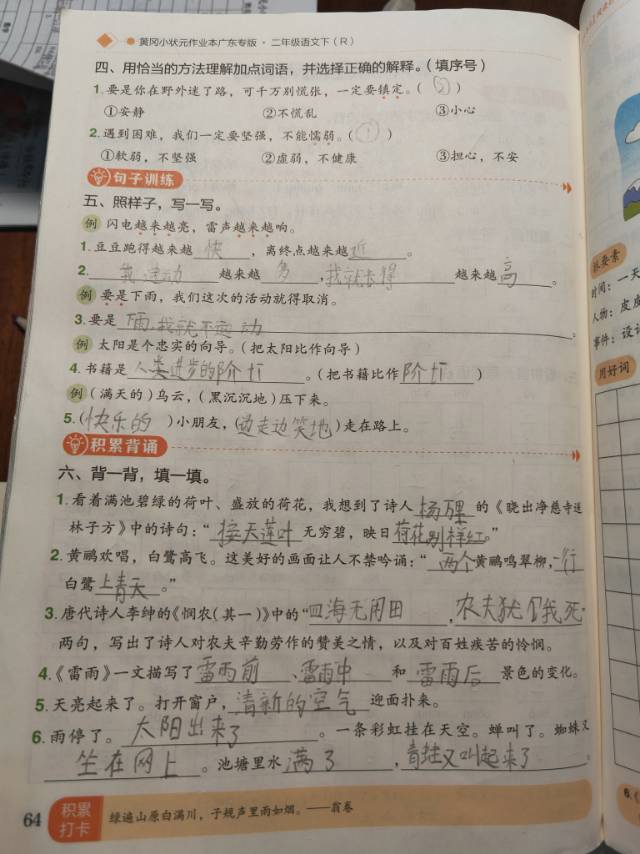 黄冈小状元作业本广东专版·二年级语文下（R）
四、用恰当的方法理解加点词语，并选择正确的解释。（填序号）
1.要是你在野外迷了路，可千万别慌张，一定要镇定。（②）
①安静 ②不慌乱 ③小心
2.遇到困难，我们一定要坚强，不能懦弱。（①）
①软弱，不坚强 ②虚弱，不健康 ③担心，不安
句子训练
五、照样子，写一写。
例 闪电越来越亮，雷声越来越响。
1.豆豆跑得越来越快，离终点越来越近。
2.我运动越来越多，我就长得越来越高。
例 要是下雨，我们这次的活动就得取消。
3.要是下雨，我就不运动。
例 太阳是个忠实的向导。（把太阳比作向导）
4.书籍是人类进步的阶梯。（把书籍比作阶梯）
例 （满天的）乌云，（黑沉沉地）压下来。
5.（快乐的）小朋友，（边走边笑地）走在路上。
积累背诵
六、背一背，填一填。
1.看着满池碧绿的荷叶、盛放的荷花，我想到了诗人杨万里的《晓出净慈寺送
林子方》中的诗句：“接天莲叶无穷碧，映日荷花别样红。”
2.黄鹂欢唱，白鹭高飞。这美好的画面让人不禁吟诵：“两个黄鹂鸣翠柳，一行
白鹭上青天。”
3.唐代诗人李绅的《悯农（其一）》中的“四海无闲田，农夫犹饿死”
两句，写出了诗人对农夫辛勤劳作的赞美之情，以及对百姓疾苦的怜悯。
4.《雷雨》一文描写了雷雨前、雷雨中和雷雨后景色的变化。
5.天亮起来了。打开窗户，清新的空气迎面扑来。
6.雨停了。太阳出来了。一条彩虹挂在天空。蝉叫了。蜘蛛又
坐在网上。池塘里水满了，青蛙又叫起来了。
64 积累
打卡
绿遍山原白满川，子规声里雨如烟。——翁卷
时间：一天
人物：皮皮
事件：
用好词
6.